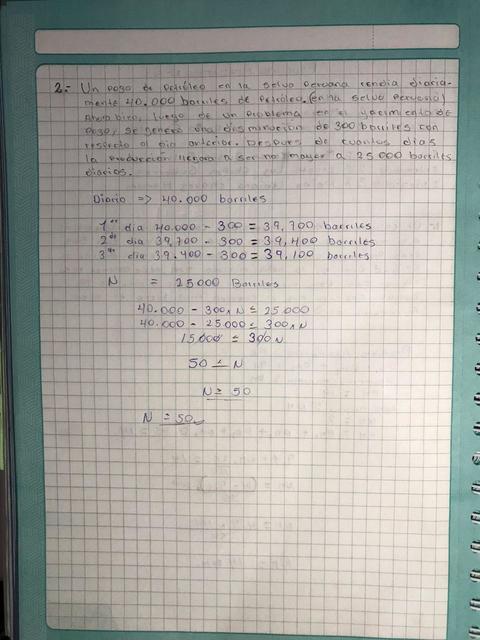 2.- Un pozo de petróleo en la selva Peruana rendia diaria-
mente 40.000 barriles de petróleo. (en la selva Peruana)
Ahora bien, luego de un problema en el yacimiento de
Pozo, se genero una disminucion de 300 barriles con
respecto al dia anterior. Despues de cuantos dias
la producción llegara a ser no mayor a 25000 barriles
diarios.
Diario => 40.000 barriles
1er dia 40.000 - 300 = 39,700 barriles
2do dia 39,700 - 300 = 39,400 barriles
3er dia 39.400 - 300 = 39,100 barriles
N = 25000 Barriles
40.000 - 300 x N ≤ 25.000
40.000 - 25.000 ≤ 300 x N
15.000 ≤ 300 N
50 ≤ N
N ≥ 50
N = 50